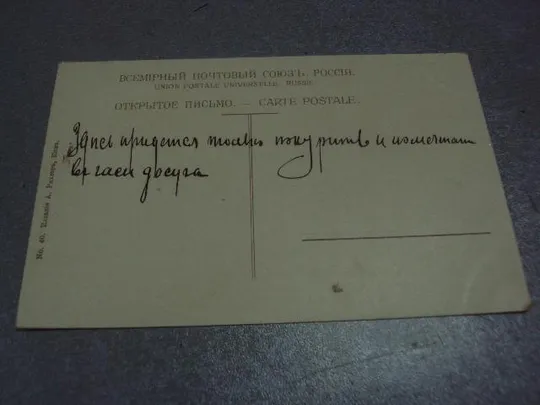 ВСЕМІРНЫЙ ПОЧТОВЫЙ СОЮЗЪ. РОССІЯ.
UNION POSTALE UNIVERSELLE. RUSSIE.
ОТКРЫТОЕ ПИСЬМО. — CARTE POSTALE.
Здесь придется только покурить и помечтать
в часы досуга
No. 40.